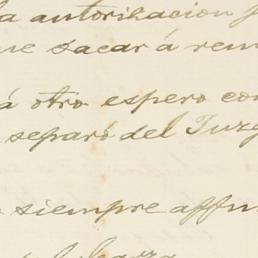 la autorizacion
sacar á rem
á otro espero con
separó del Juzg
siempre affm